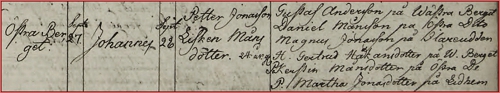 Östra Ber
get.
Sept
27
Johannes
Sept
28
Petter Jonasson
Lisken Måns
dotter. 24
Gustaf Andersson på Wästra Berget
Daniel Månsson på Östra Dito
Magnus Jonasson på
H. Gertrud Håkansdotter på W. Berget
P Kerstin Månsdotter på Östra Do
P. Martha Jonsdotter på